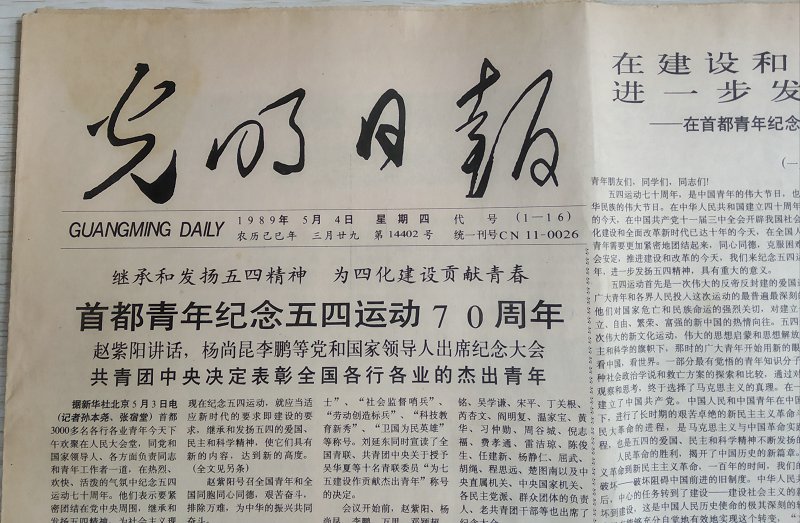 光明日报
1989年 5月 4日 星期四 代号 (1—16)
GUANGMING DAILY
农历己巳年 三月廿九 第14402号 统一刊号CN 11-0026
继承和发扬五四精神 为四化建设贡献青春
首都青年纪念五四运动70周年
赵紫阳讲话，杨尚昆李鹏等党和国家领导人出席纪念大会
共青团中央决定表彰全国各行各业的杰出青年
据新华社北京5月3日电
(记者孙本尧、张宿堂) 首都
3000多名各行各业青年今天下
午欢聚在人民大会堂，同党和
国家领导人、各方面负责同志
和青年工作者一道，在热烈、
欢快、活泼的气氛中纪念五四
运动七十周年。他们表示要紧
密团结在党中央周围，继承和
发扬五四精神，为社会主义现
现在纪念五四运动，就应当适
应新时代的要求即建设的要
求，继承和发扬五四的爱国、
民主和科学精神，使它们具有
新的内容，达到新的高度。
(全文见另条)
赵紫阳号召全国青年和全
国同胞同心同德，艰苦奋斗，
排除万难，为中华的振兴共同
奋斗。
士”、“社会监督哨兵”、
“劳动创造标兵”、“科技教
育新秀”、“卫国为民英雄”
等称号。刘延东同时宣读了全
国青联、共青团中央关于授予
吴华夏等十名青联委员“为七
五建设作贡献杰出青年”称号
的决定。
会议开始前，赵紫阳、杨
尚昆、李鹏、万里、邓颖超
铭、吴学谦、宋平、丁关根、
芮杏文、阎明复、温家宝、黄
华、习仲勋、周谷城、倪志
福、费孝通、雷洁琼、陈俊
生、任建新、杨静仁、屈武、
胡绳、程思远、楚图南以及中
央直属机关、中央国家机关、
各民主党派、群众团体的负责
人、老共青团干部等也出席了
纪念大会。
在建设和
进一步发
——在首都青年纪念
(一
青年朋友们、同学们，同志们！
五四运动七十周年，是中国青年的伟大节日，也
华民族的伟大节日。在中华人民共和国建立四十周年
的今天，在中国共产党十一届三中全会开辟我国社会
化建设和全面改革新时代已达十年的今天，在全国人
青年需要更加紧密地团结起来，同心同德，克服困难
会安定，推进建设和改革的今天，我们来纪念五四运
年，进一步发扬五四精神，具有重大的意义。
五四运动首先是一次伟大的反帝反封建的爱国运
广大青年和各界人民投入这次运动的最普遍最深刻
他们对国家危亡和民族命运的强烈关切，对建立
立、自由、繁荣、富强的新中国的热情向往。五四
次伟大的新文化运动，伟大的思想启蒙和思想解放
主和科学的旗帜下，那时的广大青年开始用新的眼
看中国，看世界。一部分最有觉悟的青年知识分子
种社会政治学说和救亡方案的探索和比较，通过对
观察和思考，终于选择了马克思主义的真理。在一
建立了中国共产党。中国人民和中国青年在中国
下，进行了长时期的艰苦卓绝的新民主主义革命
民大革命的进程，是马克思主义与中国革命实践
程，也是五四的爱国、民主和科学精神不断发扬
人民革命的胜利，揭开了中国历史的新篇章。
义革命到新民主主义革命，一百年的时间，我们的
破坏——破坏阻碍中国前进的旧制度。中华人民
后，中心的任务转到了建设——建设社会主义的
坏到建设，这是中国人民历史使命的极其深刻的
够充分自觉地有效地实现这个转变，